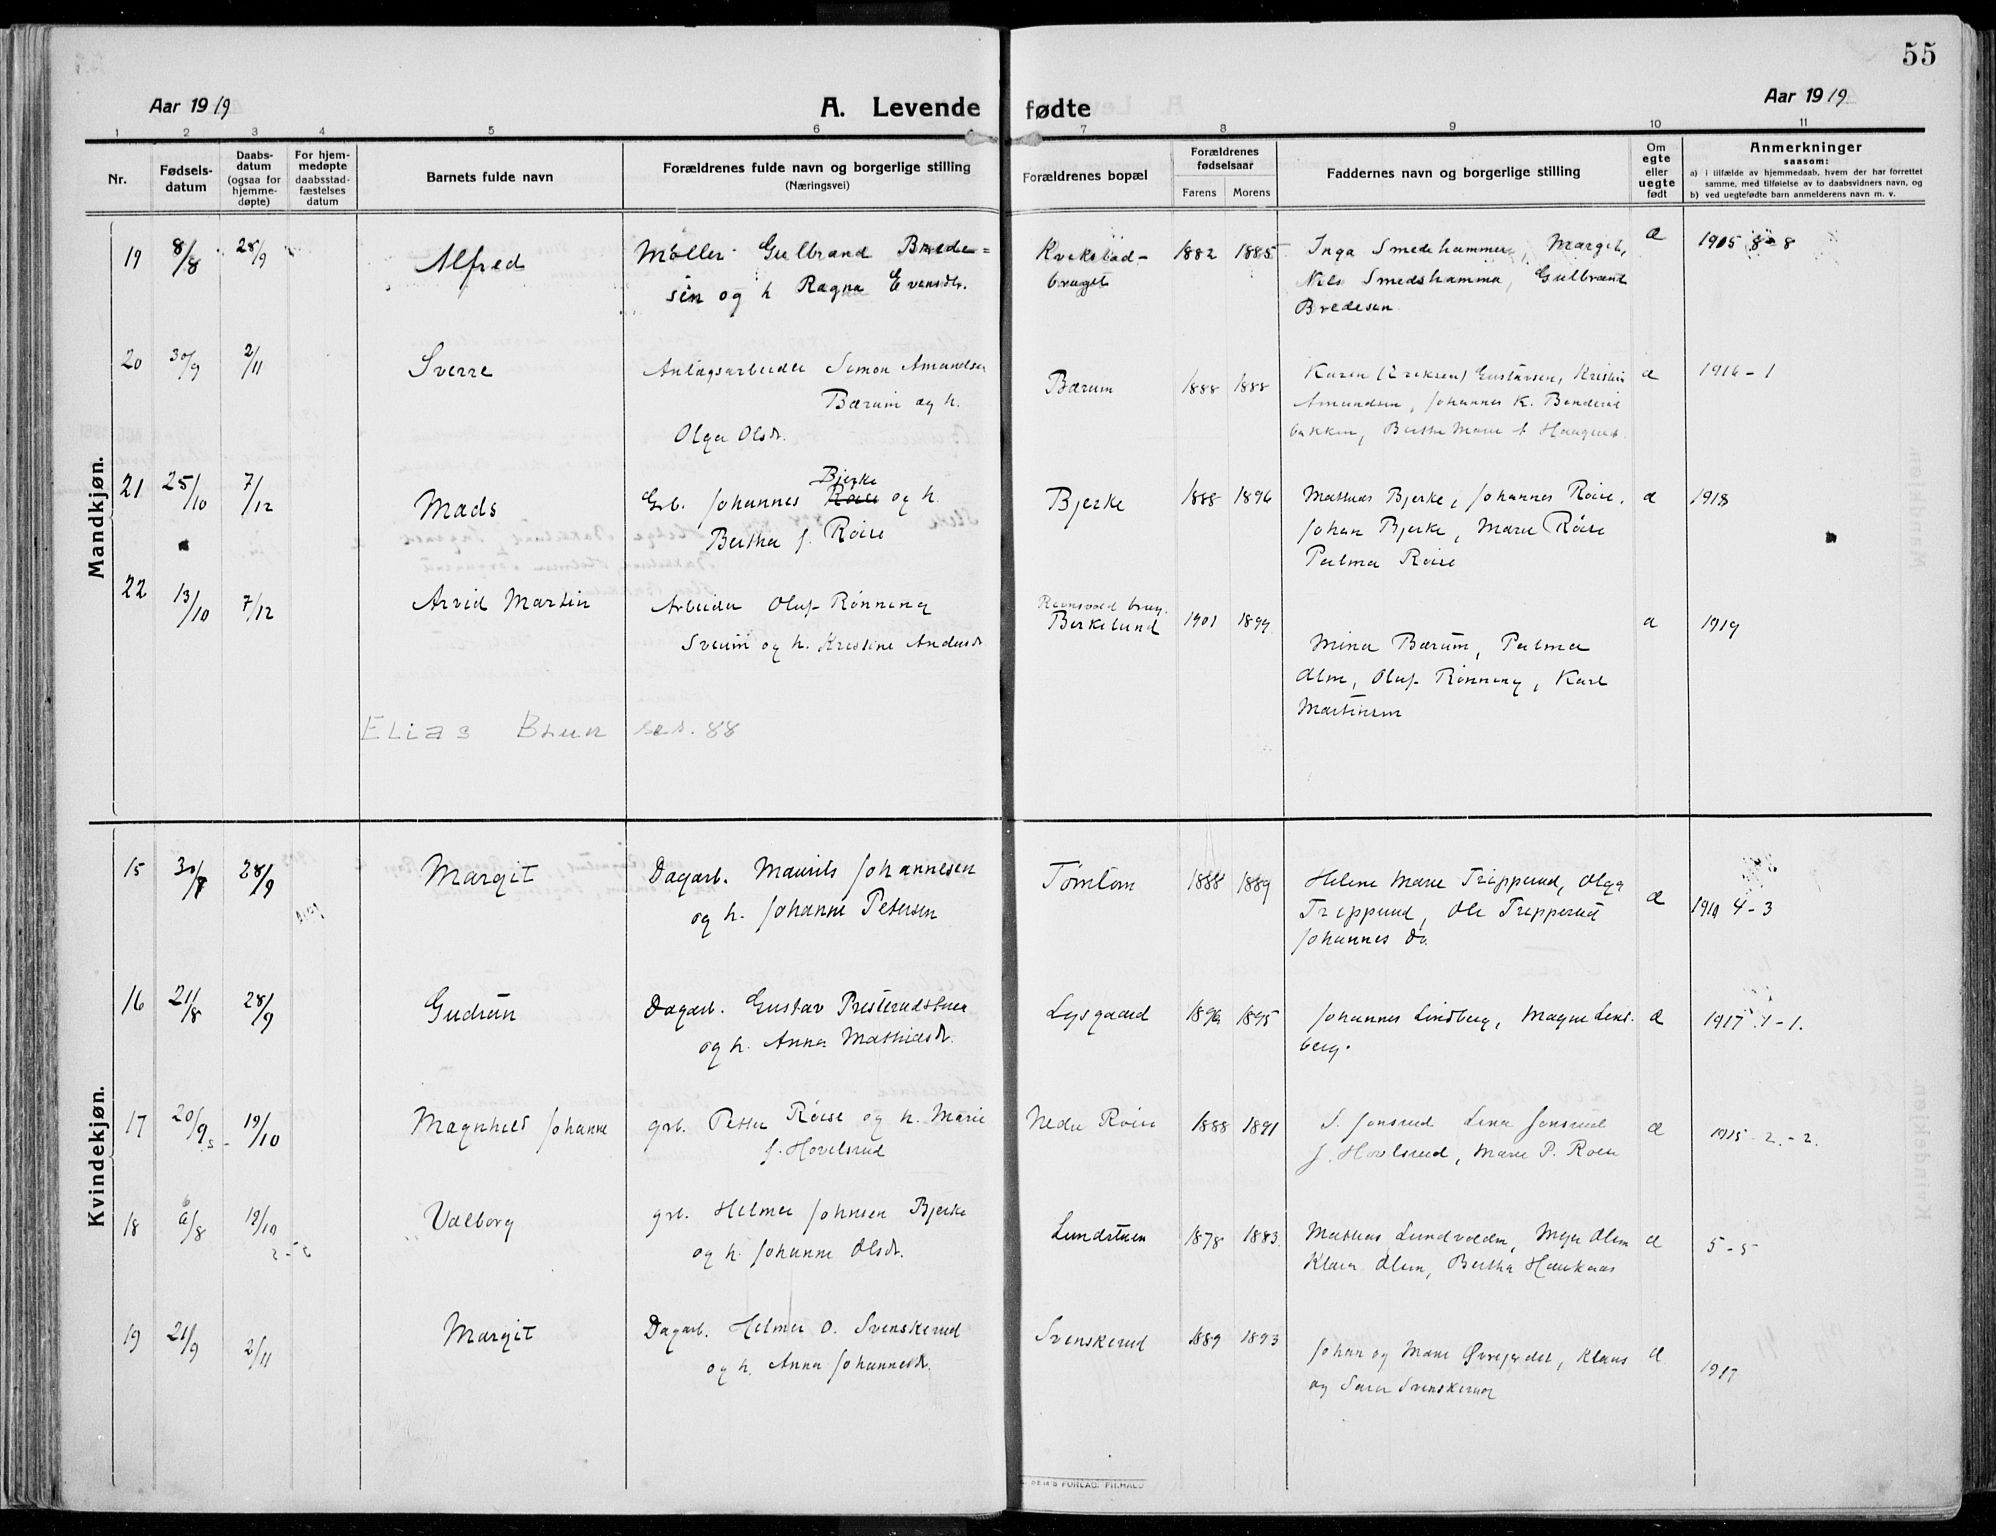 55
Aar 1919
A. Levende
fødte
Aar 1919
1 2 3 4 5 6 7 8 9 10 11
Nr.
Fødsels-
datum
Daabs-
datum
(ogsaa for
hjemme-
døpte)
For hjem-
medøpte
daabsstad-
fæstelses
datum
Barnets fulde navn
Forældrenes fulde navn og borgerlige stilling
(Næringsvei)
Forældrenes bopæl
Forældrenes
fødselsaar
Farens Morens
Faddernes navn og borgerlige stilling
Om
egte
eller
uegte
født
Anmerkninger
saasom:
a) i tilfælde av hjemmedaab, hvem der har forrettet
samme, med tilføielse av to daabsvidners navn, og
b) ved uegtefødte barn anmelderens navn m. v.
Mandkjøn.
19 8/8 28/9 Alfred Møller Gulbrand Brede=
sen og h Ragna Evensdtr.
Kvekstad-
bruget
1882 1885
Inga Smedshammer, Margit,
Nils Smedshammer, Gulbrand
Bredesen
æ 1905 8-8
20 30/9 2/11 Sverre Anlægsarbeider Simon Amundsen
Bærum og h.
Olga Olsdr.
Bærum 1888 1888
Karen (Eriksen) Gustavsen, Kristin
Amundsen, Johannes K.
bakken, Berthe Marie
æ 1916 - 1
21 25/10 7/12 Mads Bjerke
Grb. Johannes Røise og h.
Bertha f. Røise
Bjerke 1888 1896
Mathias Bjerke, Johannes Røise,
Johan Bjerke, Marie Røise
Palma Røise
æ 1918
22 13/10 7/12 Arvid Martin Arbeider Oluf Rønning
Sveum og h. Kristine Andersdr
brug.
Berkelund
1901 1899
Mina Bærum, Palma
Alm, Oluf Rønning, Karl
Martinsen
æ 1919
Elias Blun 88
Kvindekjøn.
15 30/7 28/9 Margit Dagarb. Maurits Johannesen
og h. Johanne Petersen
Tømten 1888 1889
Helene Marie Tripperud, Olga
Tripperud, Ole Tripperud
Johannes do.
æ 1910 4-3
16 21/8 28/9 Gudrun Dagarb. Gustav Presterudstuen
og h. Anna Mathiasdr.
Lysgaard 1895
Johannes Lindberg, Magne Lind-
berg.
æ 1917 1-1.
17 20/9 19/10 Magnhild Johanne grb. Petter Røise og h. Marie
f. Hovelsrud
Nedre Røise 1888 1891
S. Jonsrud Lina Jonsrud
f. Hovlsrud, Marie P. Røise
æ 1915 - 2.-2.
18 6/8 19/10 Valborg grb. Helmer Johnsen Bjerke
og h. Johanne Olsdr.
Lundstuen 1878 1883.
Mathias Lundvolden, Olsen
Klara Olsen, Bertha Haukaas
æ 5-5
19 21/9 2/11 Margit Dagarb. Helmer O. Svenskerud
og h. Anna Johannesdr.
Svenskerud 1889 1893
Johan og Marie Øvregjerdet, Klaus
og Sara Svenskerud
æ 1917